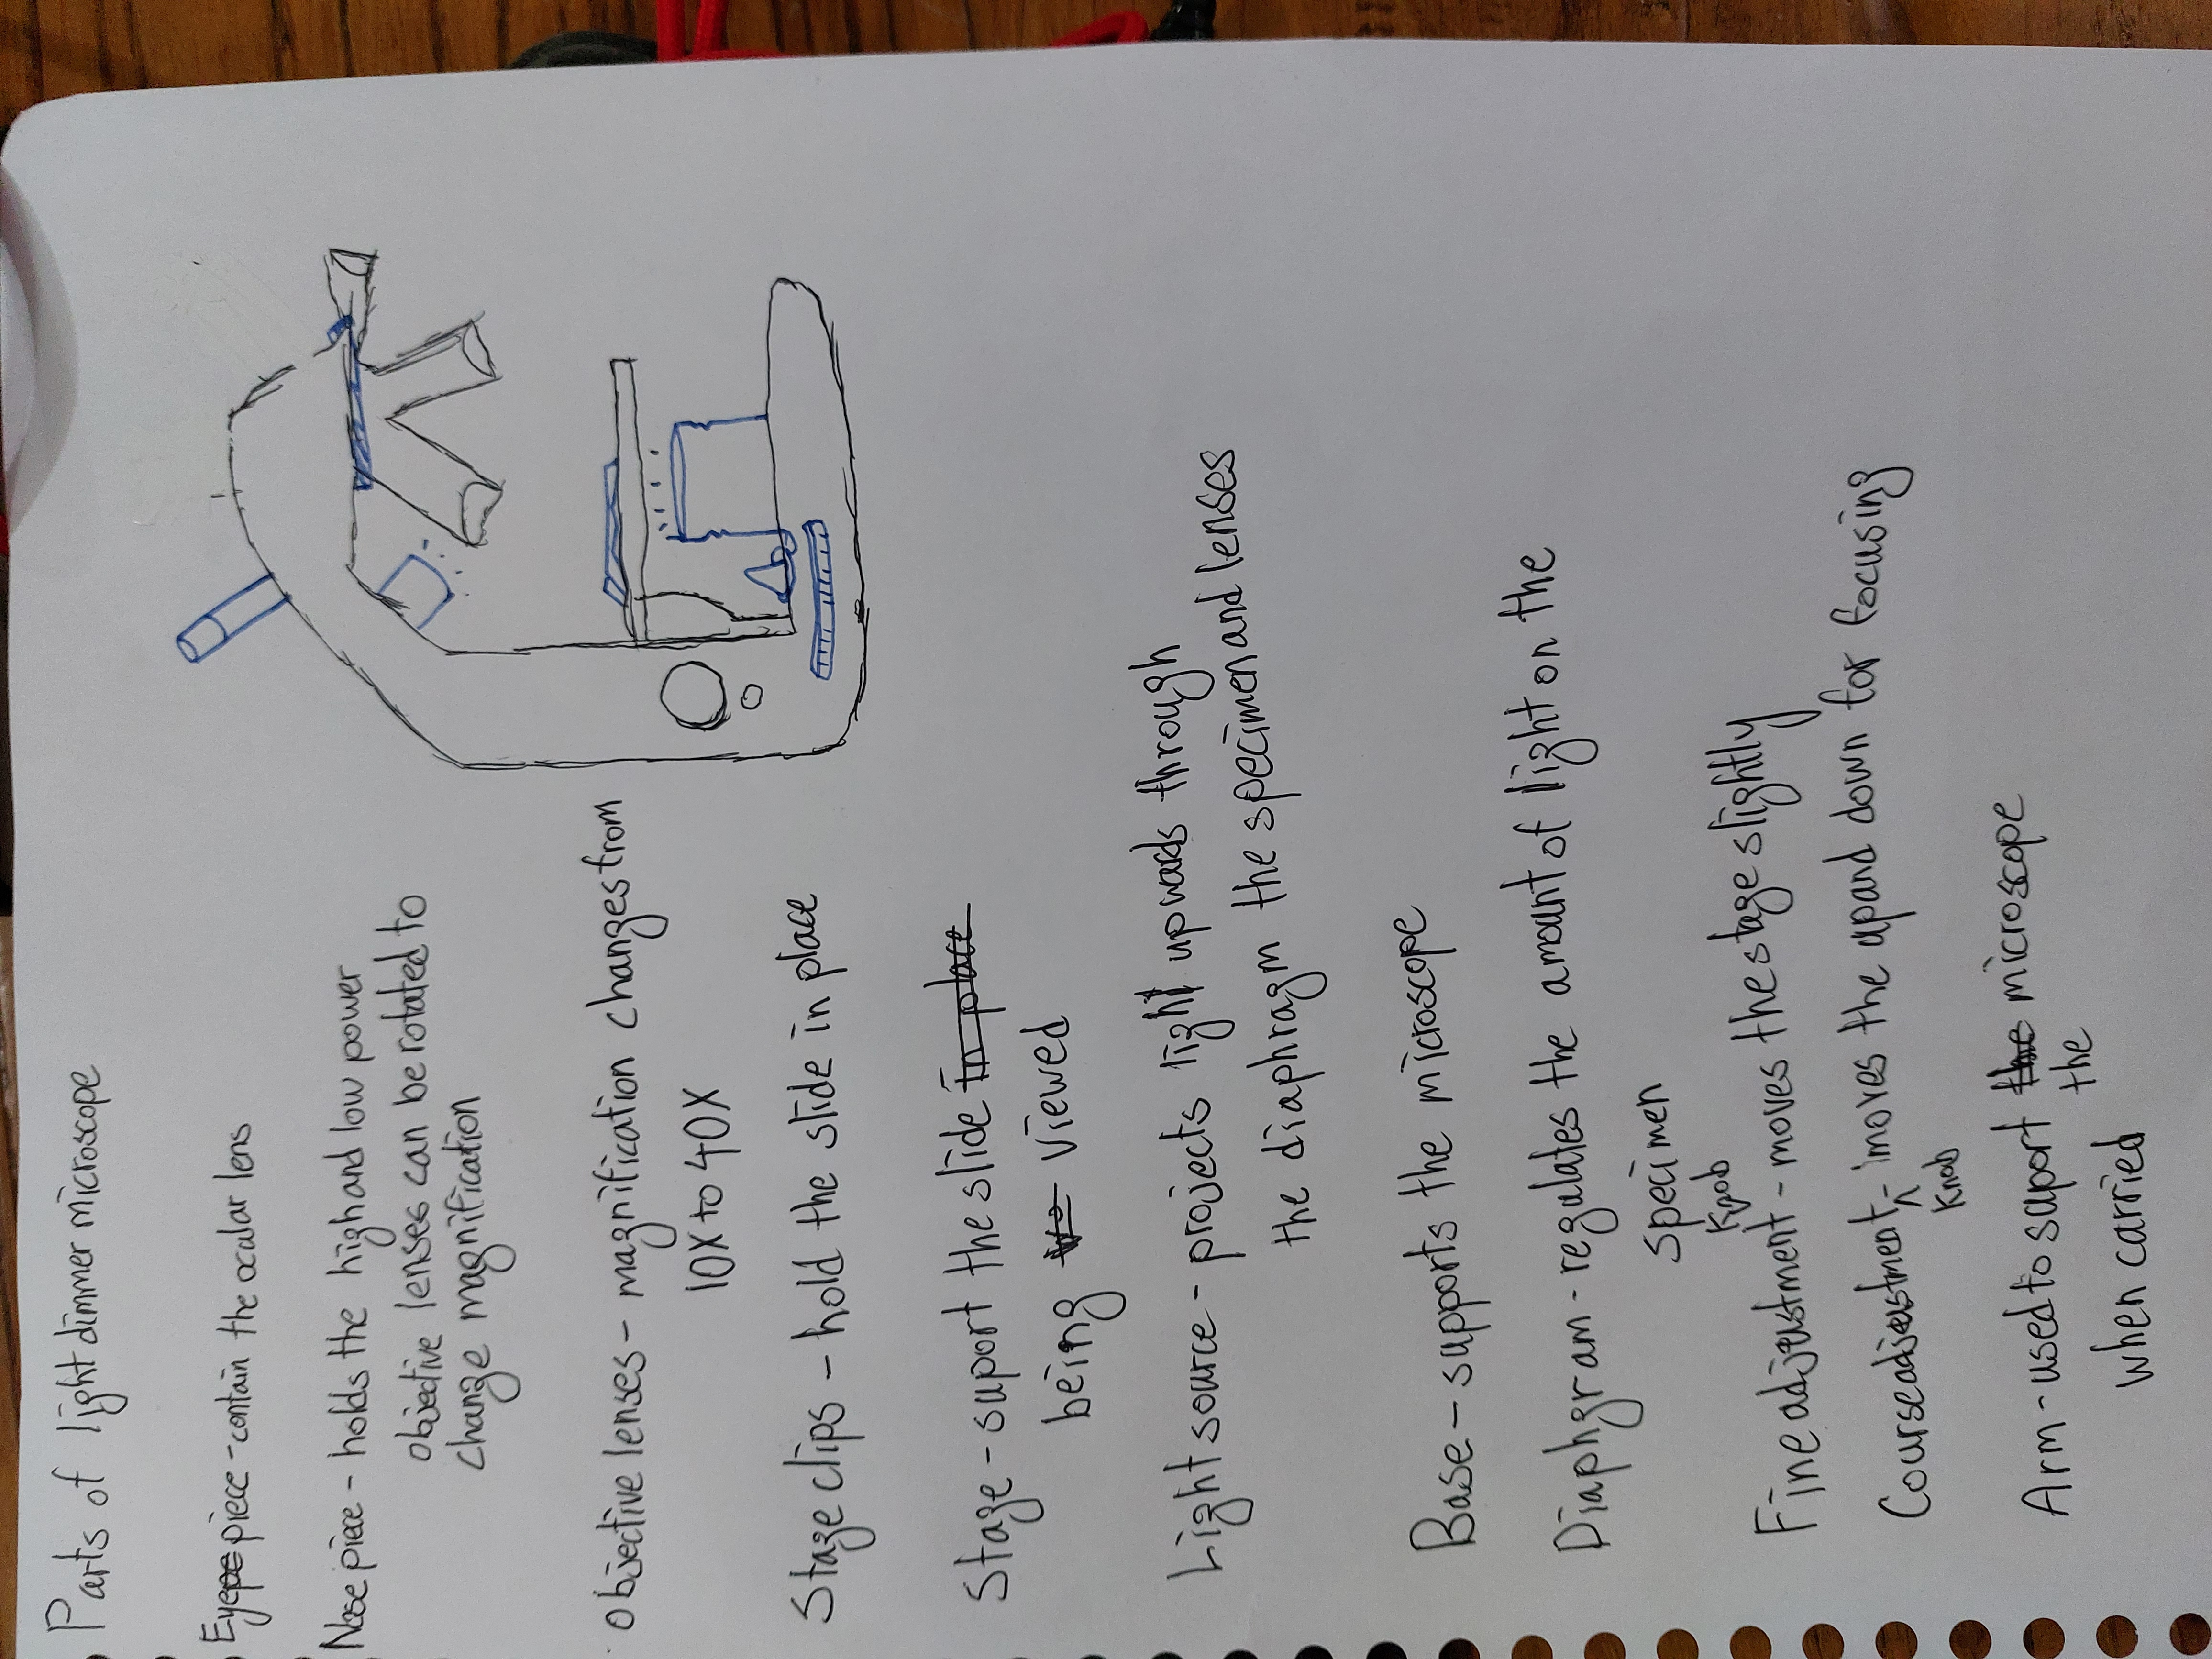 Parts of light dimmer microscope
Eyepiece - contain the ocular lens
Nose piece - holds the high and low power
objective lenses can be rotated to
change magnification
objective lenses - magnification changes from
10X to 40X
Stage clips - hold the slide in place
Stage - suport the slide in place
being viewed
Light source - projects light upwards through
the diaphragm the specimen and lenses
Base - supports the microscope
Diaphgram - regulates the amount of light on the
specimen
Knob
Fine adjustment - moves the stage slightly
Course adjustment - moves the up and down for focusing
Knob
Arm - used to support the microscope
the
when carried